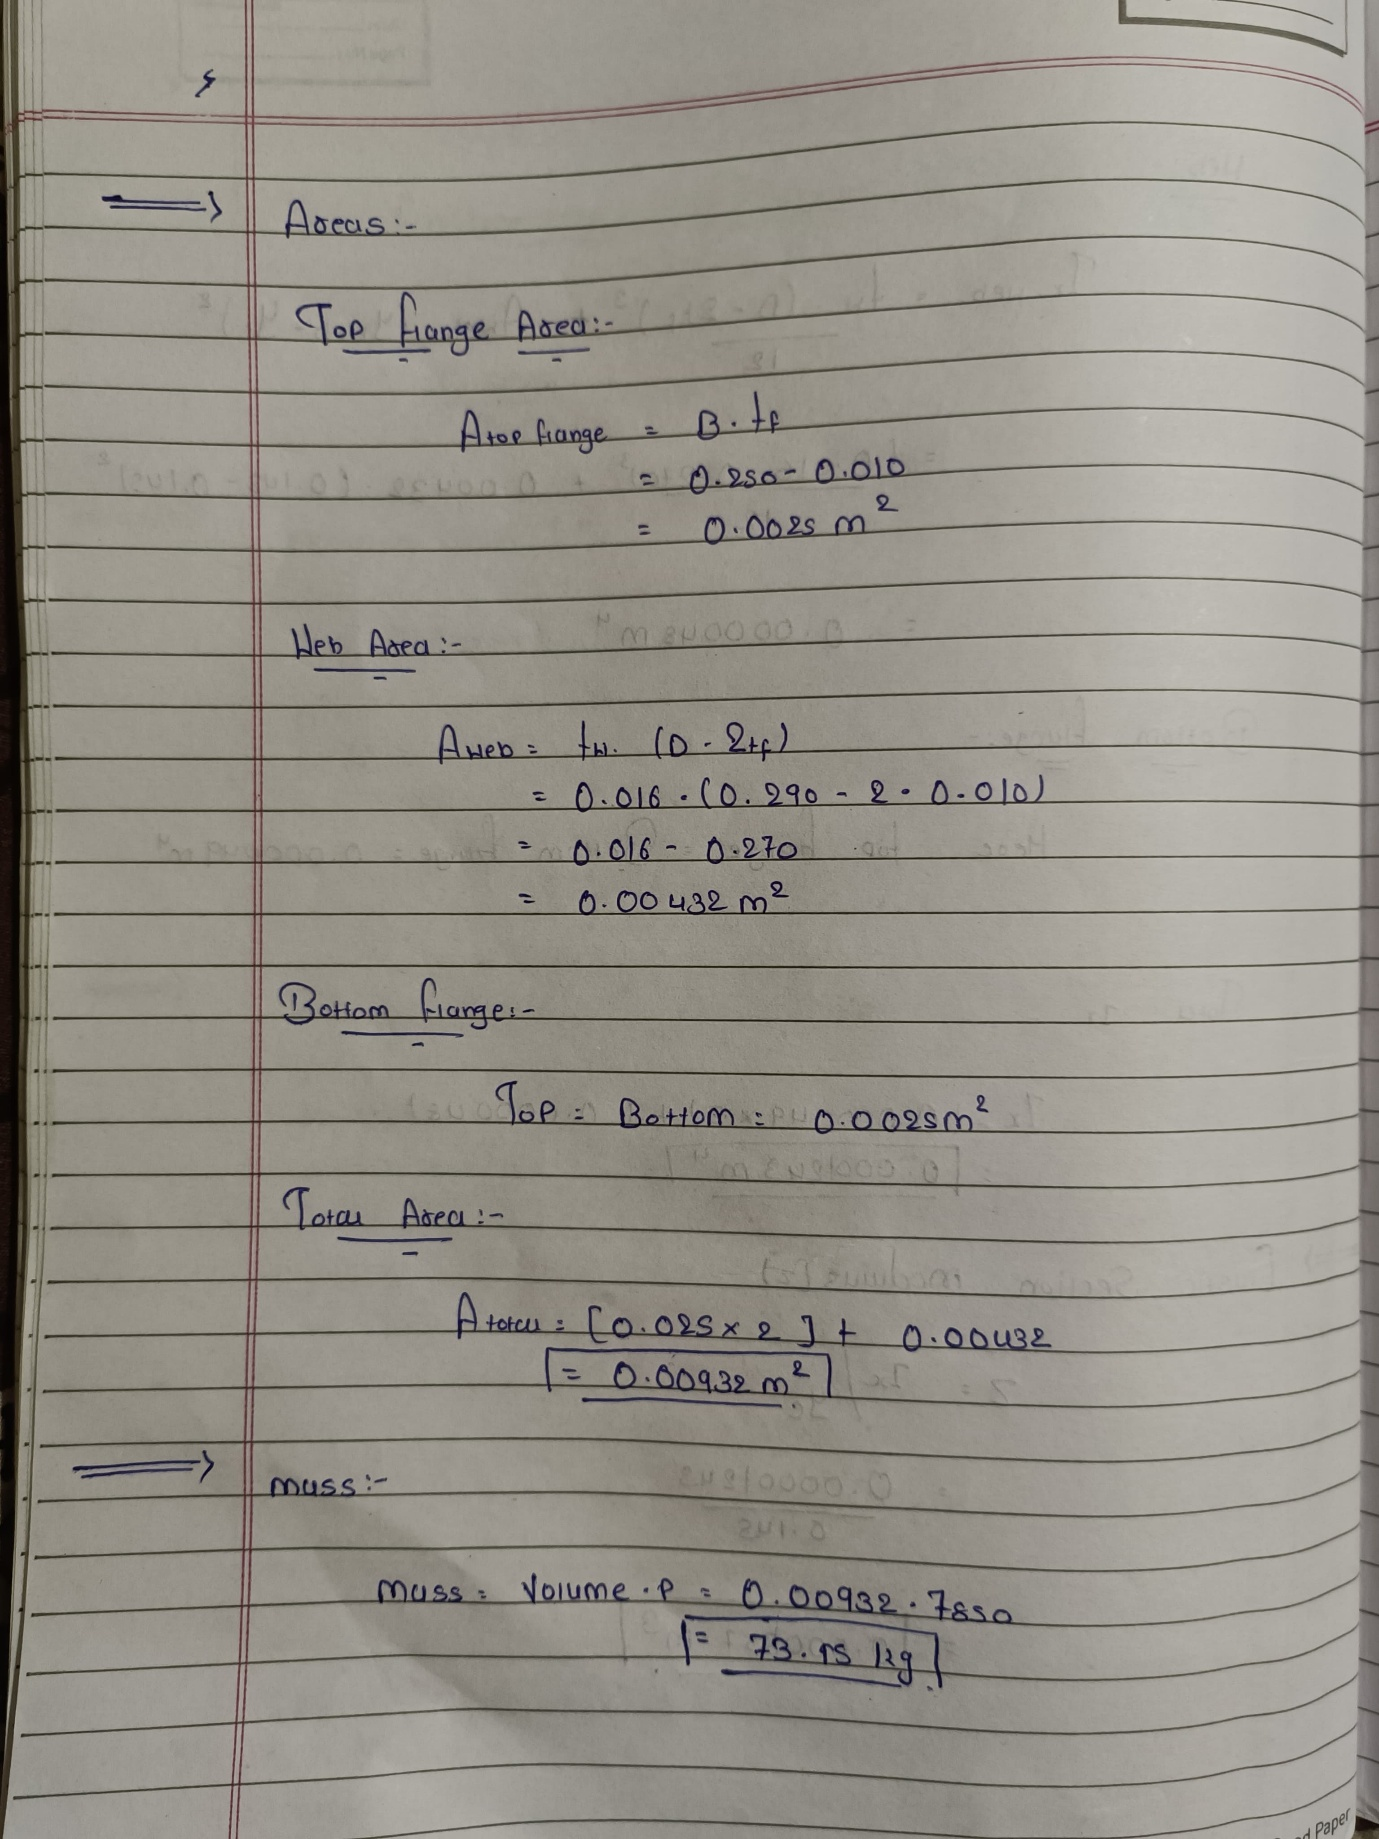 Areas :-
Top flange Area :-
A top flange = B . tf
= 0.250 - 0.010
= 0.0025 m²
Web Area :-
Aweb = tw. (D - 2tf)
= 0.016 . (0.290 - 2 . 0.010)
= 0.016 - 0.270
= 0.00432 m²
Bottom flange :-
Top = Bottom = 0.0025m²
Total Area :-
A total = [0.025 x 2 ] + 0.00432
= 0.00932 m²
mass :-
mass = Volume . ρ = 0.00932 . 7850
= 73.15 kg
Paper